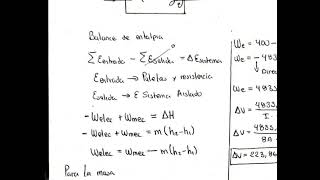 Balance de entalpia
ΣEentrada - ΣEsalida = ΔEsistema
Eentrada → Paletas y resistencia
Esalida → E Sistema Aislado
-Welec + Wmec = ΔH
-Welec + Wmec = m(h2-h1)
Welec = Wmec - m(h2-h1)
Para la masa
We = 400 -
We = - 4833
Direc
We = 4833
ΔV = 4833,
I.
ΔV = 4833,
8A.
ΔV = 223,86